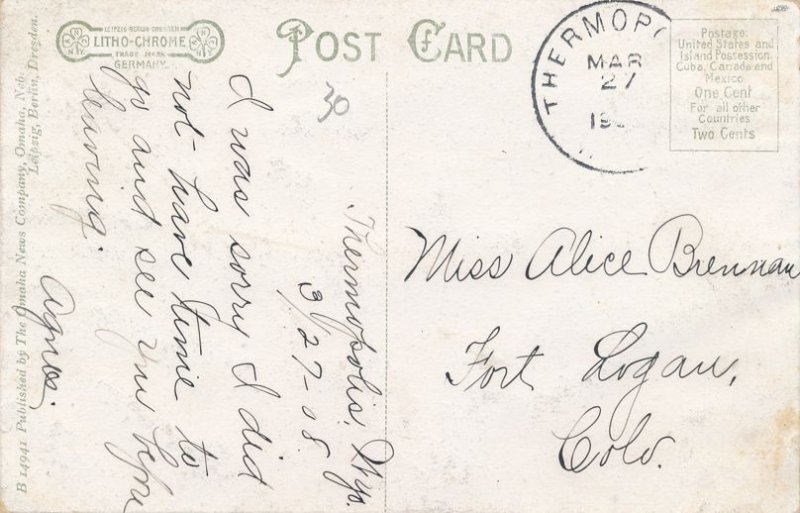 LEIPZIG-BERLIN-DRESDEN
LITHO-CHROME
TRADE MARK
GERMANY.
POST CARD
THERMOPO
MAR
27
Postage:
United States and
Island Possession
Cuba, Canada and
Mexico
One Cent
For all other
Countries
Two Cents
30
Thermopolis, Wyo.
3/27-08
I was sorry I did
not have time to
go and see you before
leaving.
Agnes.
Miss Alice Brennan
Fort Logan,
Colo.
B 14941 Published by The Omaha News Company, Omaha, Neb.
Leipzig, Berlin, Dresden.